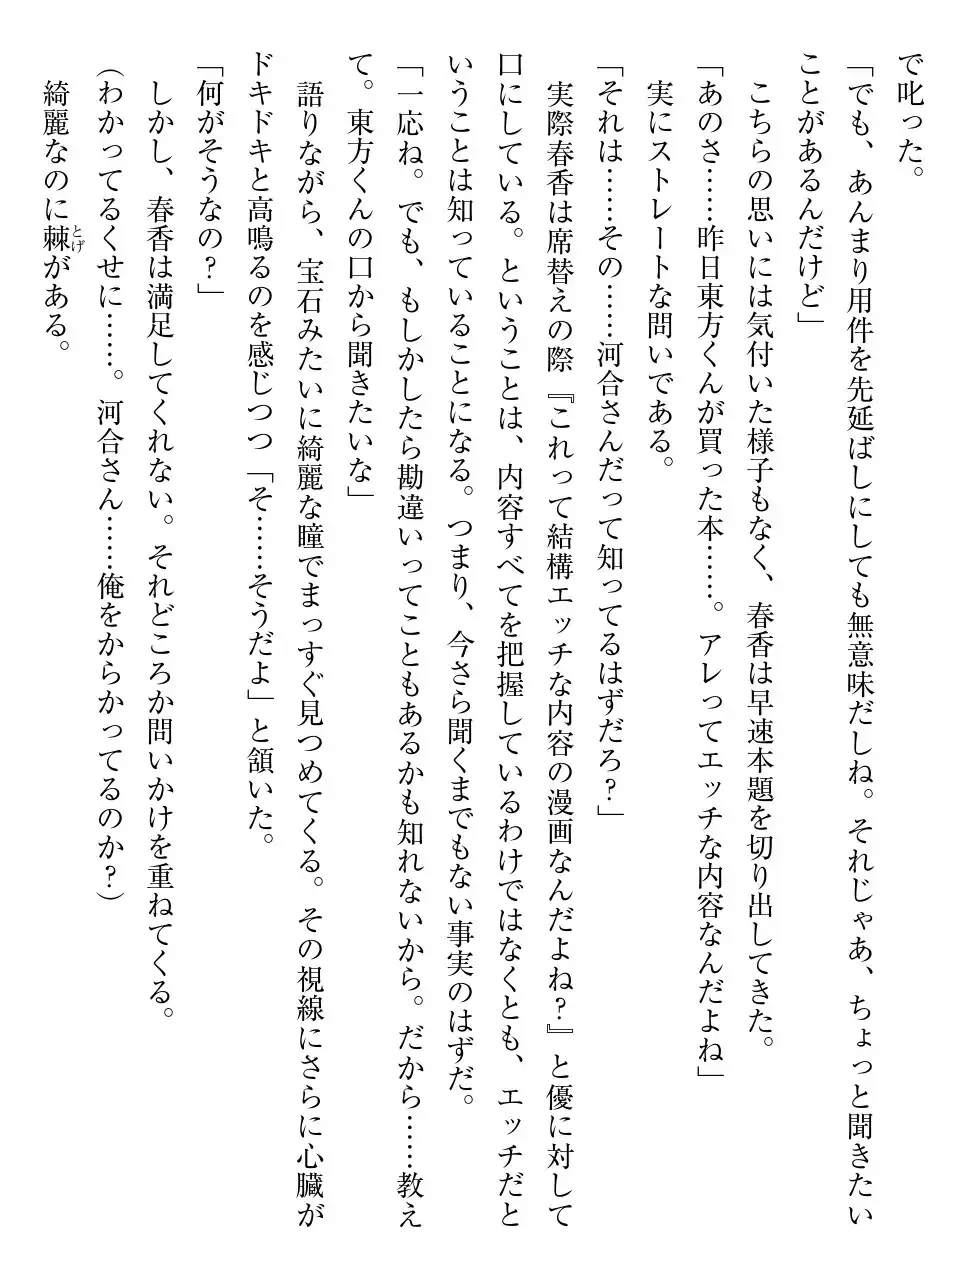 で叱った。
「でも、あんまり用件を先延ばしにしても無意味だしね。それじゃあ、ちょっと聞きたい
ことがあるんだけど」
こちらの思いには気付いた様子もなく、春香は早速本題を切り出してきた。
「あのさ……昨日東方くんが買った本……。アレってエッチな内容なんだよね」
実にストレートな問いである。
「それは……その……河合さんだって知ってるはずだろ？」
実際春香は席替えの際『これって結構エッチな内容の漫画なんだよね？』と優に対して
口にしている。ということは、内容すべてを把握しているわけではなくとも、エッチだと
いうことは知っていることになる。つまり、今さら聞くまでもない事実のはずだ。
「一応ね。でも、もしかしたら勘違いってこともあるかも知れないから。だから……教え
て。東方くんの口から聞きたいな」
語りながら、宝石みたいに綺麗な瞳でまっすぐ見つめてくる。その視線にさらに心臓が
ドキドキと高鳴るのを感じつつ「そ……そうだよ」と頷いた。
「何がそうなの？」
しかし、春香は満足してくれない。それどころか問いかけを重ねてくる。
（わかってるくせに……。河合さん……俺をからかってるのか？）
綺麗なのに棘とげがある。